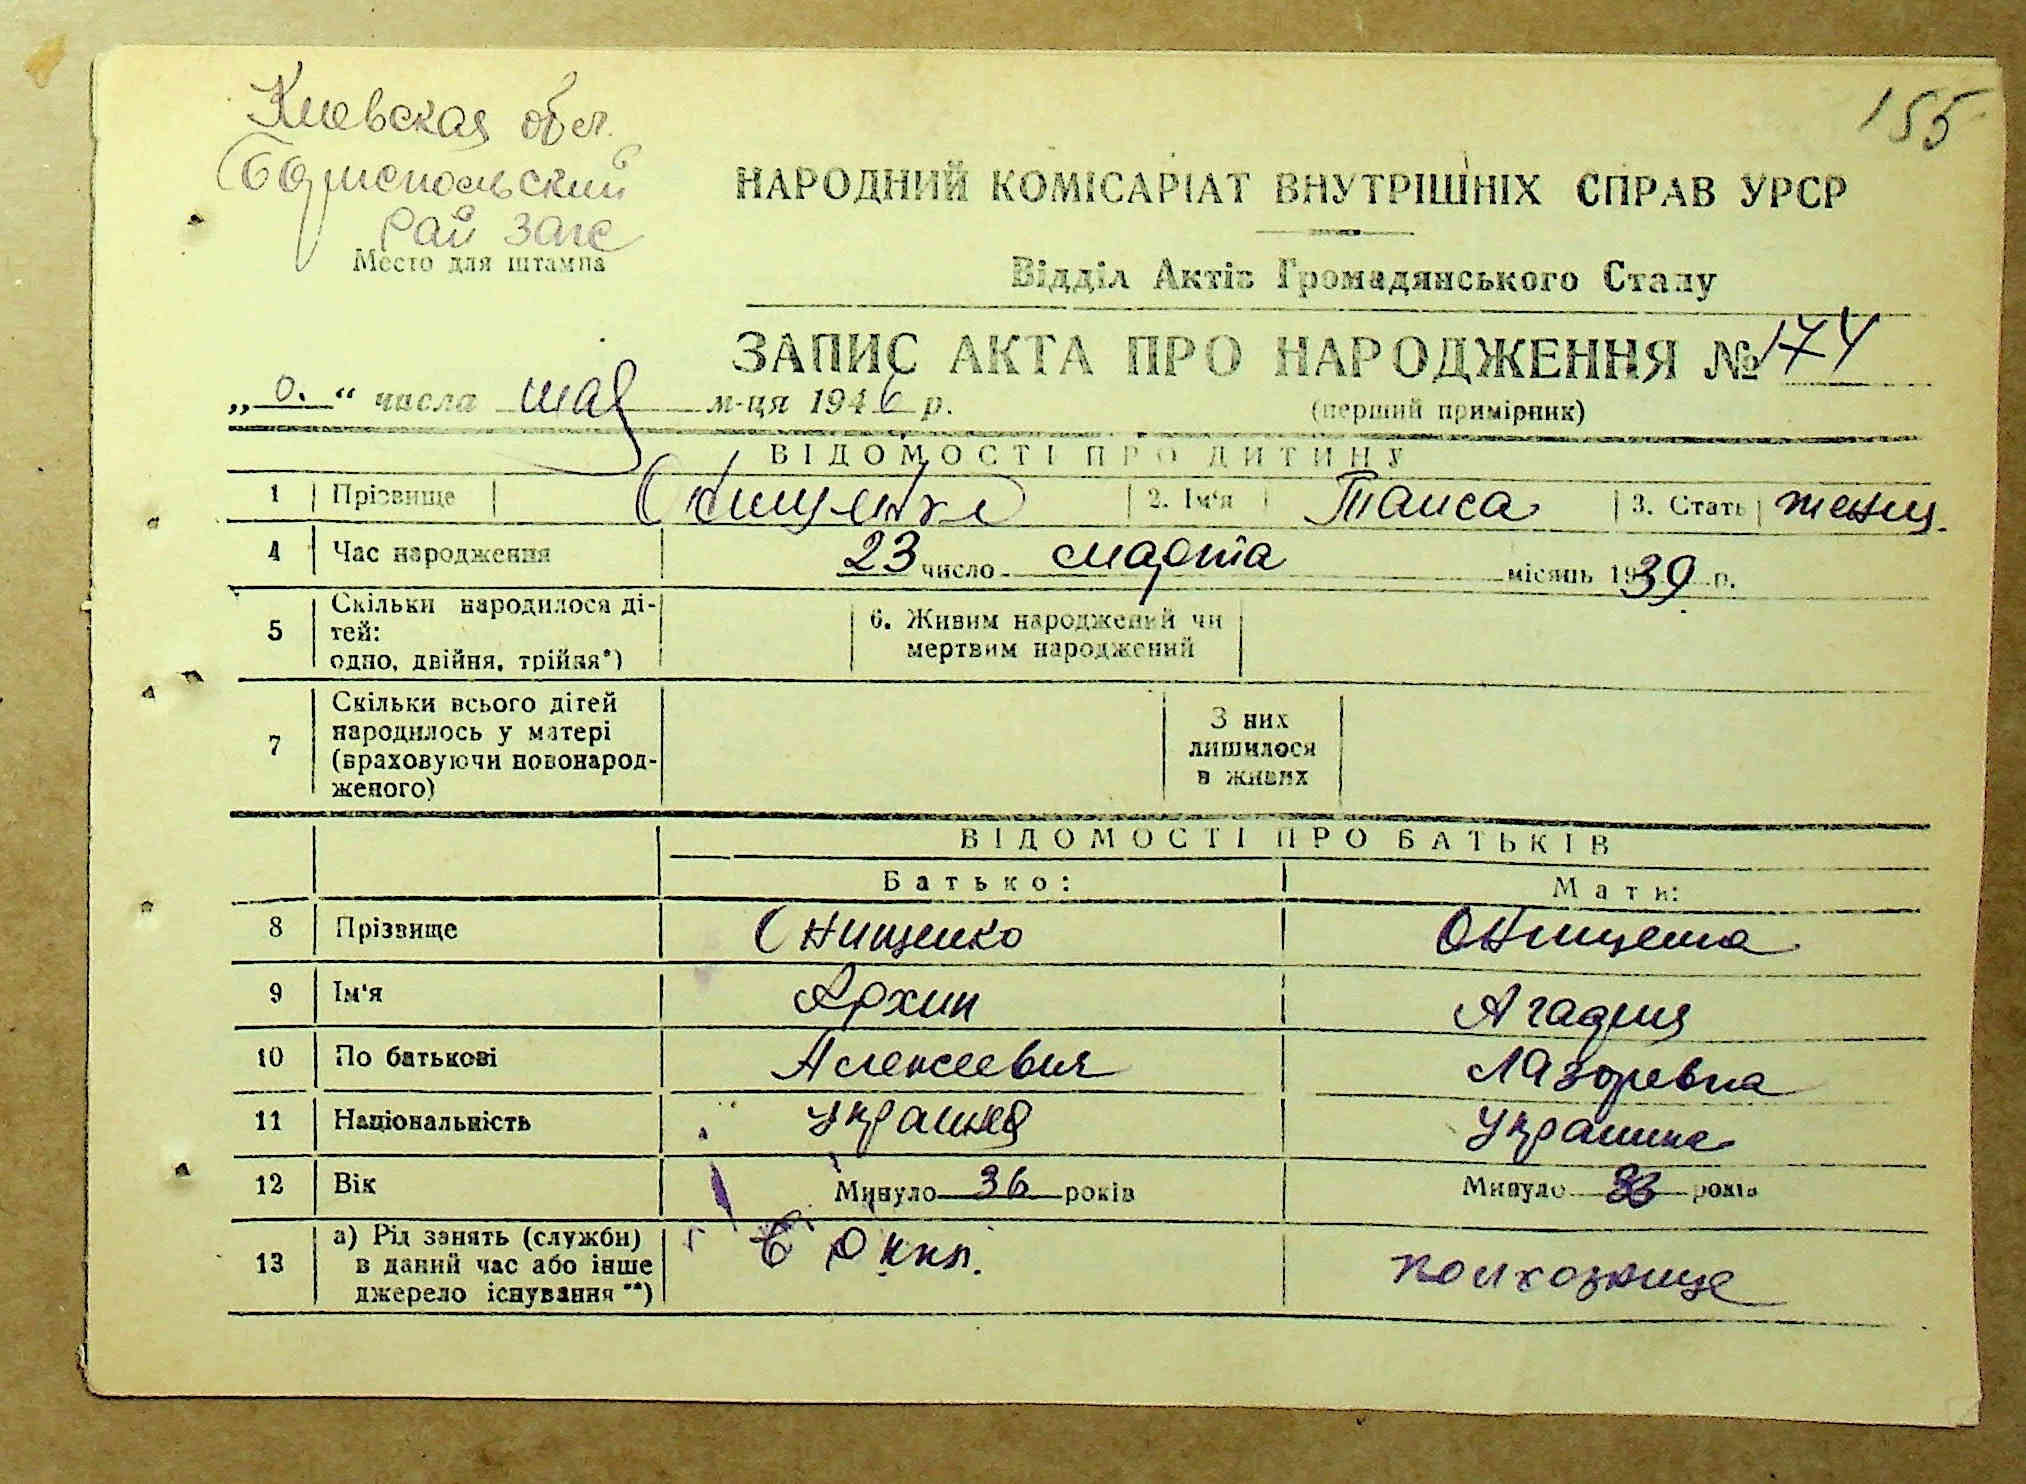 155
Киевская обл.
Бориспольский
рай загс
Место для штампа
НАРОДНИЙ КОМІСАРІАТ ВНУТРІШНІХ СПРАВ УРСР
Відділ Актів Громадянського Стану
ЗАПИС АКТА ПРО НАРОДЖЕННЯ № 174
„ 0. “ числа мая м-ця 1946 р.
(перший примірник)
ВІДОМОСТІ ПРО ДИТИНУ
1 Прізвище Онищенко 2. Ім'я Таиса 3. Стать женщ.
4 Час народження 23 число марта місяць 1939 р.
5 Скільки народилося ді-
тей:
одно, двійня, трійня*)
6. Живим народжений чи
мертвим народжений
7 Скільки всього дітей
народилось у матері
(враховуючи новонарод-
женого)
З них
лишилося
в живих
ВІДОМОСТІ ПРО БАТЬКІВ
Батько: Мати:
8 Прізвище Онищенко
9 Ім'я Архип
10 По батькові Алексеевич Лазоревна
11 Національність
12 Вік Минуло 36 років Минуло 33 років
13 а) Рід занять (служби)
в даний час або інше
джерело існування **)
колхознице